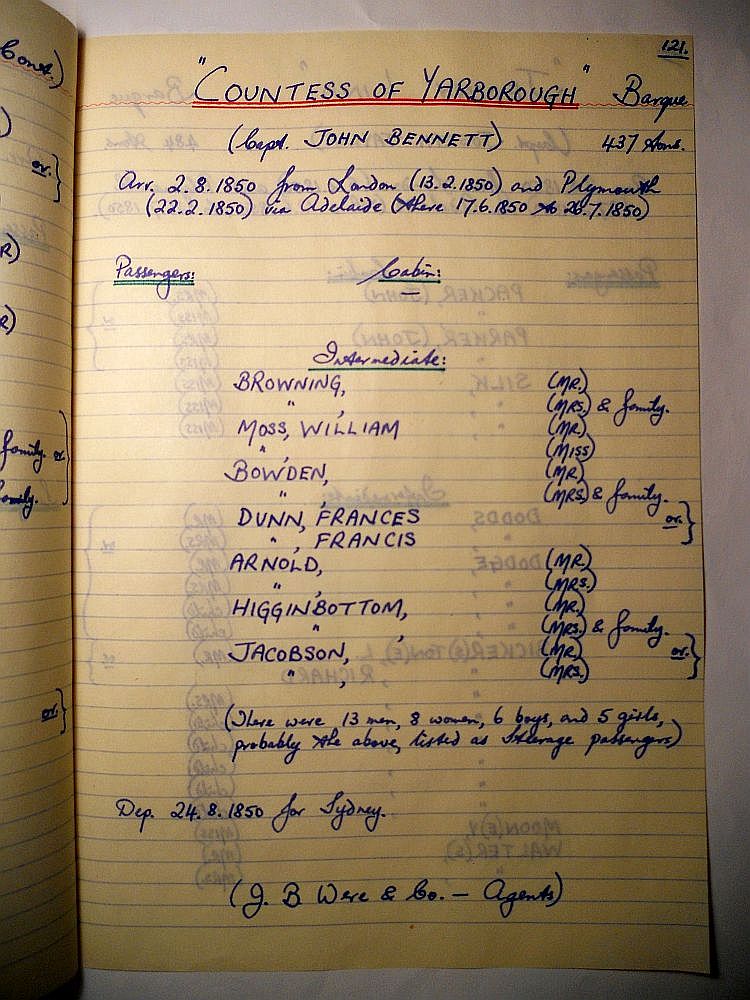 121.
Cont.)
"COUNTESS OF YARBOROUGH" Barque
(Capt. JOHN BENNETT) 437 tons.
Arr. 2.8.1850 from London (13.2.1850) and Plymouth
(22.2.1850) via Adelaide (there 17.6.1850 to 26.7.1850)
Passengers: Cabin:
—
Intermediate:
BROWNING, (MR.)
" , (MRS.) & family.
MOSS, WILLIAM (MR.)
" , (MISS)
BOWDEN, (MR.)
" , (MRS.) & family.
DUNN, FRANCES or. }
" , FRANCIS
ARNOLD, (MR.)
" , (MRS.)
HIGGINBOTTOM, (MR.)
" , (MRS.) & family.
JACOBSON, (MR.) or. }
" , (MRS.)
(There were 13 men, 8 women, 6 boys, and 5 girls,
probably the above, listed as Steerage passengers)
Dep. 24.8.1850 for Sydney.
(J. B Were & Co. — Agents)
or. }
R)
R)
family or.
family.
or. }